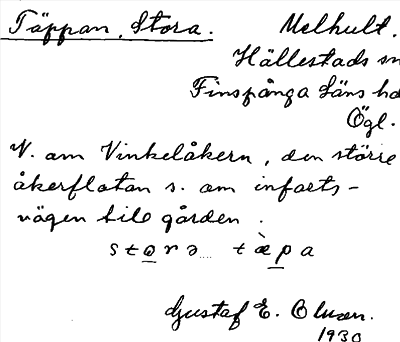 Täppan, Stora. Melhult.
Hällestads sn
Finspånga läns hd
Ögl.
V. om Vinkelåkern, den större
åkerflatan s. om infarts-
vägen till gården.
storə tæ̀pa
Gustaf E. Olsson.
1930